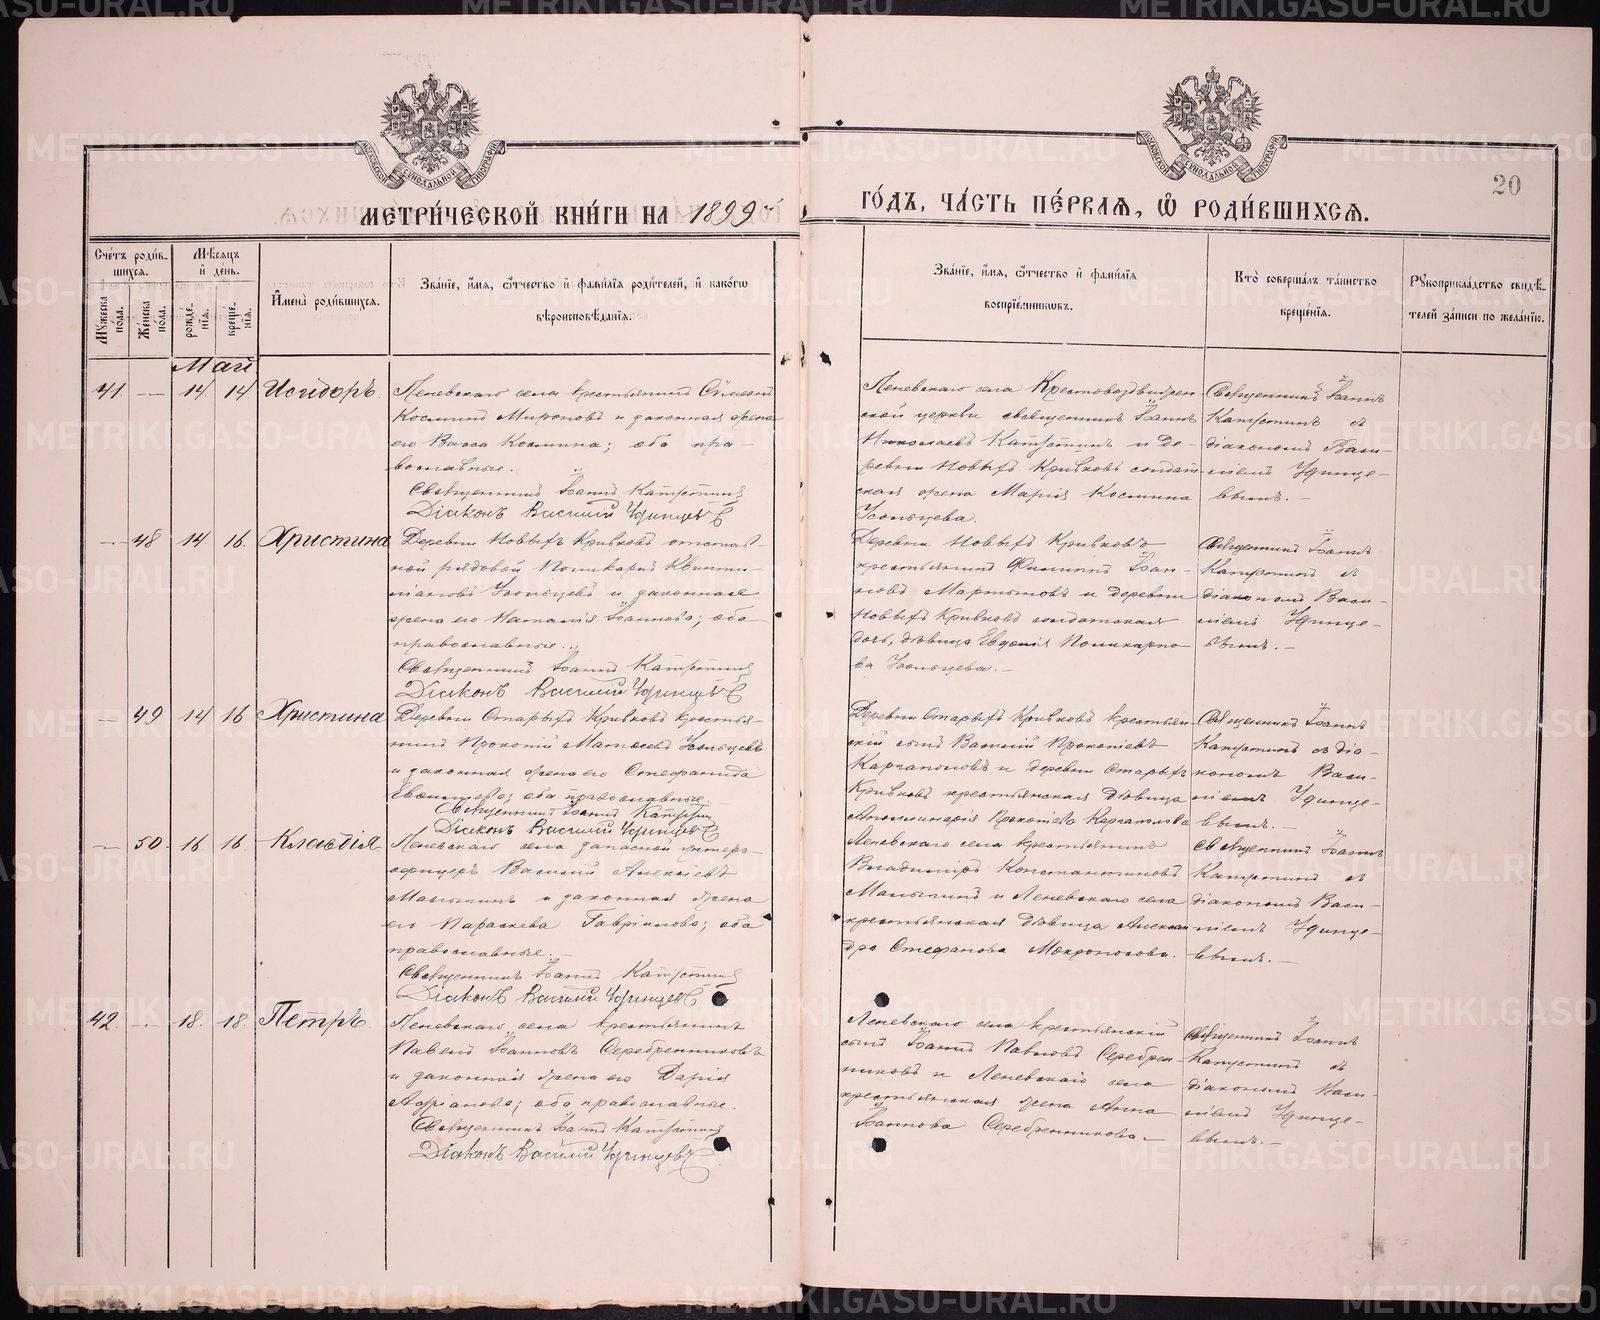 МЕТРИ́ЧЕСКОЙ КНИ́ГИ НА 1899й
ГО́ДЪ, ЧА́СТЬ ПЕ́РВАЯ, Ѡ РОДИ́ВШИХСЯ.
20
Сче́тъ роди́в-
шихся.
Му́жеска по́ла.
Же́нска по́ла.
Мѣ́сяцъ
и҆ де́нь.
рожде́-
нїя.
креще́-
нїя.
И҆мена̀ роди́вшихся.
Зва́нїе, и҆́мя, ѻ҆́тчество и҆ фами́лїя роди́телей, и҆ како́гѡ
вѣроисповѣ́данїя.
Зва́нїе, и҆́мя, ѻ҆́тчество и҆ фами́лїя
воспрїе́мникѡвъ.
Кто̀ соверша́лъ та́инство
креще́нїя.
Рукоприкла́дство свидѣ́-
телей за́писи по жела́нїю.
Май
41. — 14 14 Исидоръ.
Леневскаго села крестьянинъ Сѷмеонъ
Косминъ Мироновъ и законная жена
его Васса Космина; оба пра-
вославные.
Священникъ Іоаннъ Капустинъ
Діаконъ Василій Удинцевъ
Леневскаго села Крестовоздвижен-
ской церкви священникъ Іоаннъ
Николаевъ Капустинъ и де-
ревни Новыхъ Кривковъ солдат-
ская жена Марія Космина
Усольцева.
Священникъ Іоаннъ
Капустинъ съ
діакономъ Васи-
ліемъ Удинце-
вымъ. —
— 48 14 16. Христина
Деревни Новыхъ Кривковъ отстав-
ной рядовой Поликарпъ Квинти-
ліановъ Усольцевъ и законная
жена его Наталія Іоаннова; оба
православные.
Священникъ Іоаннъ Капустинъ
Діаконъ Василій Удинцевъ
Деревни Новыхъ Кривковъ
крестьянинъ Филиппъ Іоан-
новъ Мартыновъ и деревни
Новыхъ Кривковъ солдатская
дочь, дѣвица Евдокія Поликарпо-
ва Усольцева. —
Священникъ Іоаннъ
Капустинъ съ
діакономъ Васи-
ліемъ Удинце-
вымъ. —
— 49 14 16 Христина
Деревни Старыхъ Кривковъ крестья-
нинъ Прокопій Матѳеевъ Усольцевъ
и законная жена его Стефанида
оба православные
Священникъ Іоаннъ Капустинъ
Діаконъ Василій Удинцевъ
Деревни Старыхъ Кривковъ крестьян-
скій сынъ Василій Прокопіевъ
Каргаполовъ и деревни Старыхъ
Кривковъ крестьянская дѣвица
Аполлинарія Прокопіева Каргаполова
Священникъ Іоаннъ
Капустинъ съ діа-
кономъ Васи-
ліемъ Удинце-
вымъ. —
— 50. 16 16 Клавдія
Леневскаго села запасной унтеръ-
офицеръ Василій Алексіевъ
Малыгинъ и законная жена
его Параскева Гавріилова; оба
православные. —
Священникъ Іоаннъ Капустинъ
Діаконъ Василій Удинцевъ
Леневскаго села крестьянинъ
Владиміръ Константиновъ
Малыгинъ и Леневскаго села
крестьянская дѣвица Алексан-
дра Стефанова Мокроносова.
Священникъ Іоаннъ
Капустинъ съ
діакономъ Васи-
ліемъ Удинце-
вымъ. —
42. — 18. 18 Петръ.
Леневскаго села крестьянинъ
Павелъ Іоанновъ Серебренниковъ
и законная жена его Дарія
Адріанова; оба православные.
Священникъ Іоаннъ Капустинъ
Діаконъ Василій Удинцевъ
Леневскаго села крестьянскій
сынъ Іоаннъ Павловъ Серебрен-
никовъ и Леневскаго села
крестьянская жена Анна
Іоаннова Серебренникова —
Священникъ Іоаннъ
Капустинъ съ
діакономъ Васи-
ліемъ Удинце-
вымъ. —
METRIKI.GASO-URAL.RU